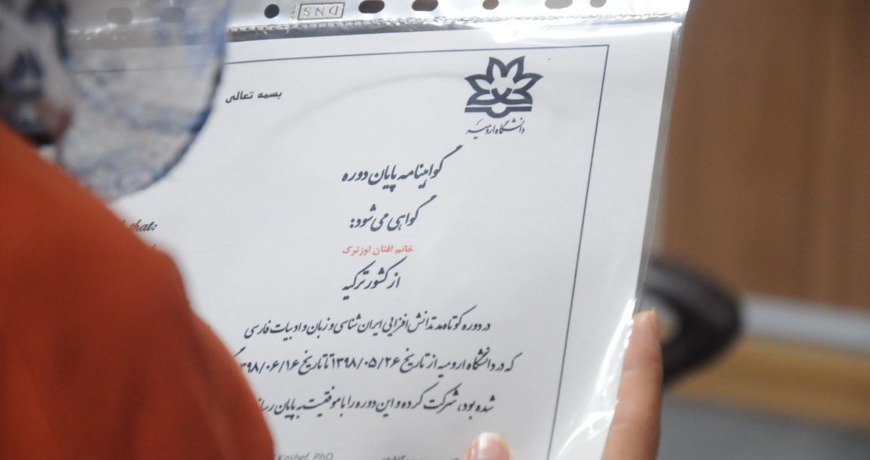 DNS
بسمه تعالی
دانشگاه ارومیه
گواهینامه پایان دوره
گواهی می شود:
خانم افتان اوزترک
از کشور ترکیه
در دوره کوتاه مدت دانش افزایی ایران شناسی و زبان و ادبیات فارسی
که در دانشگاه ارومیه از تاریخ ۱۳۹۸/۰۵/۲۶ تا تاریخ ۱۳۹۸/۰۶/۱۶
شده بود، شرکت کرده و این دوره را با موفقیت به پایان
that:
Kashef, PhD